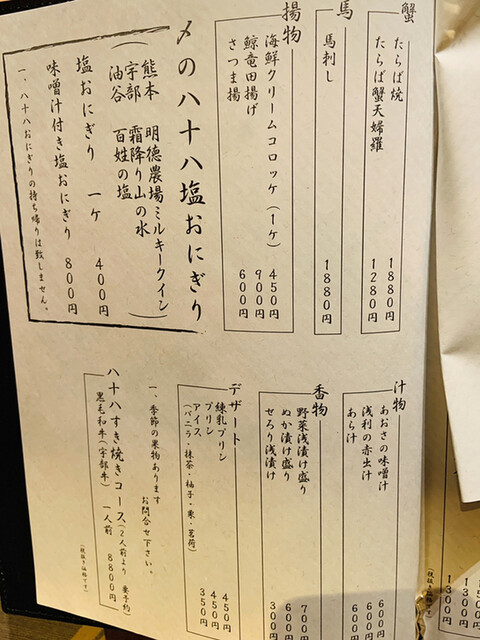 蟹
たらば焼 1880円
たらば蟹天婦羅 1280円
馬
馬刺し 1880円
揚物
海鮮クリームコロッケ(1ケ) 450円
鯨竜田揚げ 900円
さつま揚 600円
〆の八十八塩おにぎり
(熊本 明徳農場ミルキークイン
宇部 霜降り山の水
油谷 百姓の塩)
塩おにぎり 一ケ 400円
味噌汁付き塩おにぎり 800円
一、八十八おにぎりの持ち帰りは致しません。
汁物
あおさの味噌汁 600円
浅利の赤出汁 600円
あら汁 600円
香物
野菜浅漬け盛り 700円
ぬか漬け盛り 600円
せろり浅漬け 300円
デザート
練乳プリン 450円
プリン 450円
アイス 350円
(バニラ・抹茶・柚子・栗・茗荷)
一、季節の果物あります
お問合せ下さい。
八十八すき焼きコース(2人前より 要予約)
黒毛和牛(宇部牛) 一人前 8800円
(税抜き価格です)
1300円
1300円
(税抜き価格です)